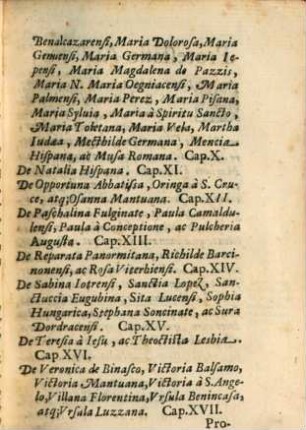 Benalcazarensi, Maria Dolorosa, Maria
Genuensi, Maria Germana, Maria Ie-
pensi, Maria Magdalena de Pazzis,
Maria N. Maria Oegniacensi, Maria
Palmensi, Maria Perez, Maria Pisana,
Maria Syluia, Maria à Spiritu Sancto,
Maria Toletana, Maria Vela, Martha
Iudæa, Mecthilde Germana, Mencia
Hispana, ac Musa Romana. Cap.X.
De Natalia Hispana. Cap.XI.
De Opportuna Abbatissa, Oringa à S. Cru-
ce, atq; Osanna Mantuana. Cap.XII.
De Paschalina Fulginate, Paula Camaldu-
lensi, Paula à Conceptione, ac Pulcheria
Augusta. Cap.XIII.
De Reparata Panormitana, Richilde Barci-
nonensi, ac Rosa Viterbiensi. Cap.XIV.
De Sabina Iotrensi, Sanctia Lopez, San-
ctuccia Eugubina, Sita Lucensi, Sophia
Hungarica, Stephana Soncinate, ac Sura
Dordracensi. Cap.XV.
De Teresia à Iesu, ac Theoctista Lesbia.
Cap.XVI.
De Veronica de Binasco, Victoria Balsamo,
Victoria Mantuana, Victoria à S. Ange-
lo, Villana Florentina, Vrsula Benincasa,
atq; Vrsula Luzzana. Cap.XVII.
Pro-